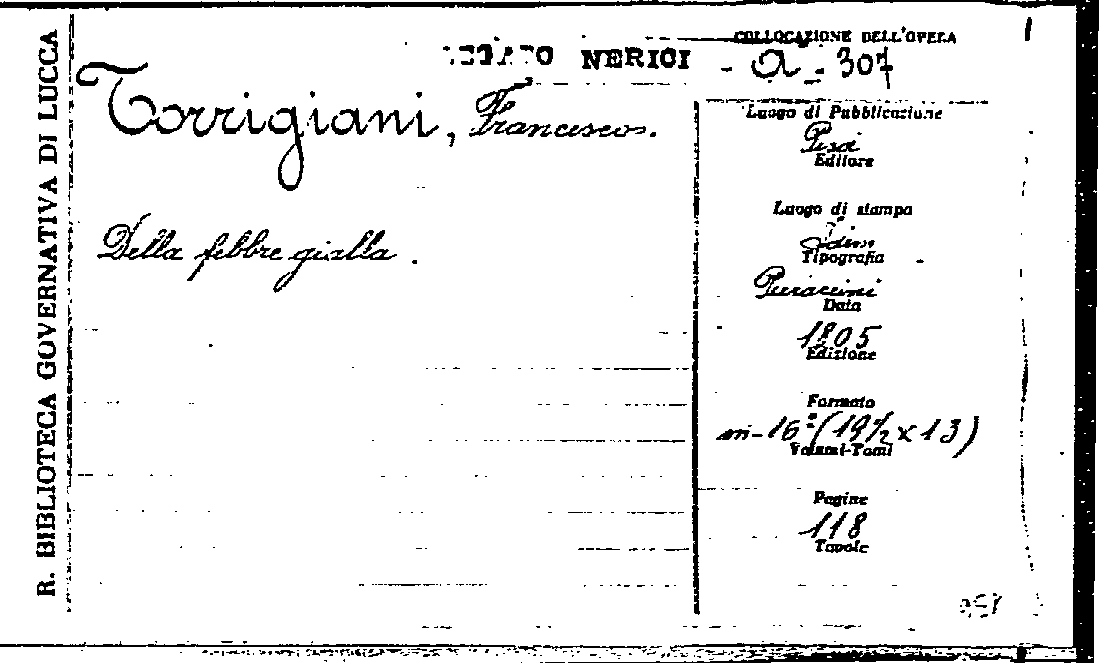 R. BIBLIOTECA GOVERNATIVA DI LUCCA
LEGATO NERICI
COLLOCAZIONE DELL'OPERA
- a - 307
Torrigiani, Francesco.
Della febbre gialla.
Luogo di Pubblicazione
Pisa
Editore
Luogo di stampa
Tipografia
Pieraccini
Data
1805
Edizione
Formato
in-16° (19½ x 13)
Volumi-Tomi
Pagine
118
Tavole